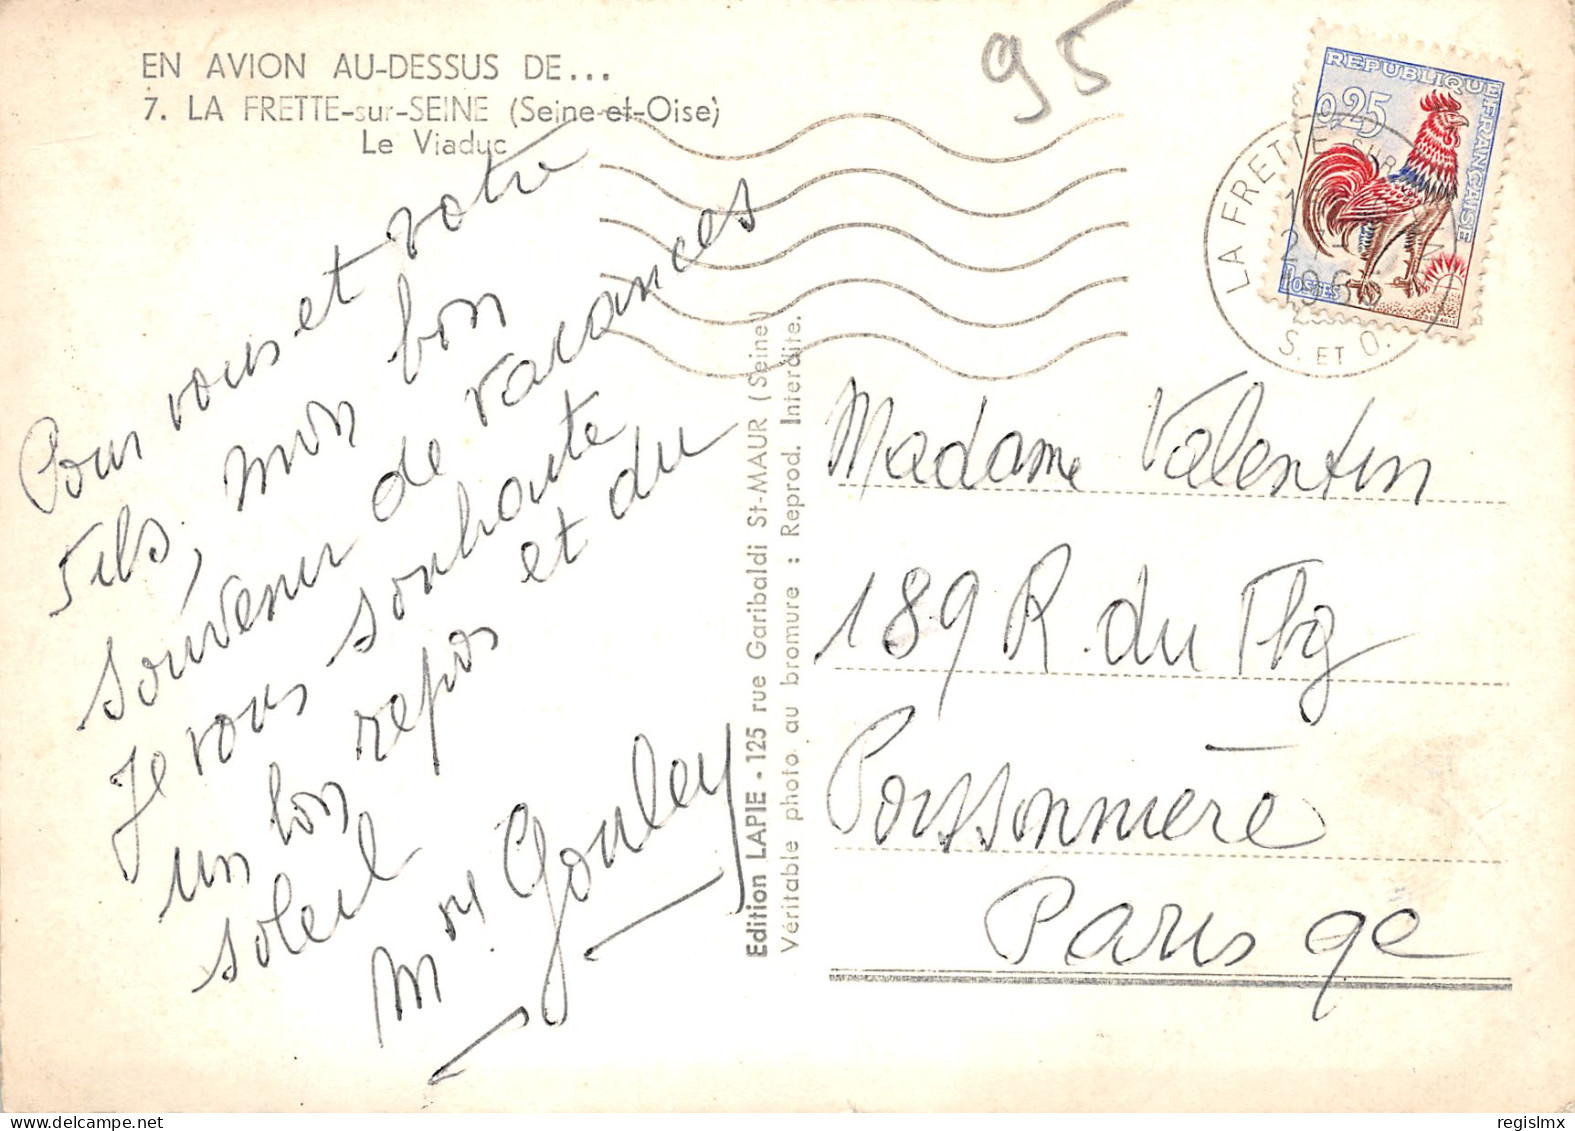 EN AVION AU-DESSUS DE...
7. LA FRETTE-sur-SEINE (Seine-et-Oise)
Le Viaduc
95
REPUBLIQUE FRANÇAISE
0,25
POSTES
LA FRETTE SUR
S. ET O.
Pour vous et votre
fils, mon bon
souvenir de vacances
Je vous souhaite
un bon repos et du
soleil
Gouley
Edition LAPIE - 125 rue Garibaldi St-MAUR (Seine)
Véritable photo au bromure : Reprod. Interdite.
Madame Valentin
189 R. du Fbg
Poissonnière
Paris 9e
regislmx